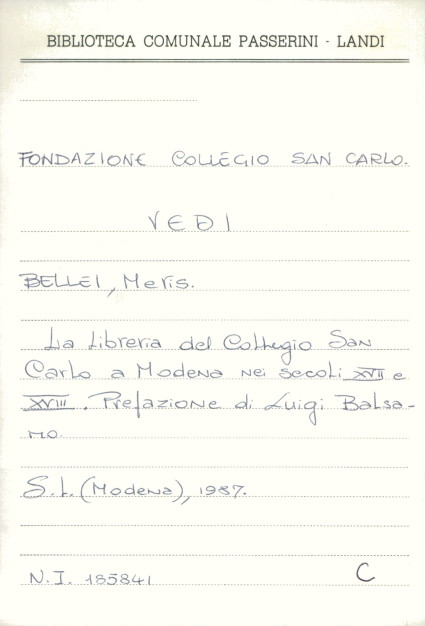 BIBLIOTECA COMUNALE PASSERINI - LANDI
FONDAZIONE COLLEGIO SAN CARLO.
VEDI
BELLEI, Meris.
La Libreria del Collegio San
Carlo a Modena nei secoli XVII e
XVIII. Prefazione di Luigi Balsa-
mo.
S.l. (Modena), 1987.
N.I. 185841 C